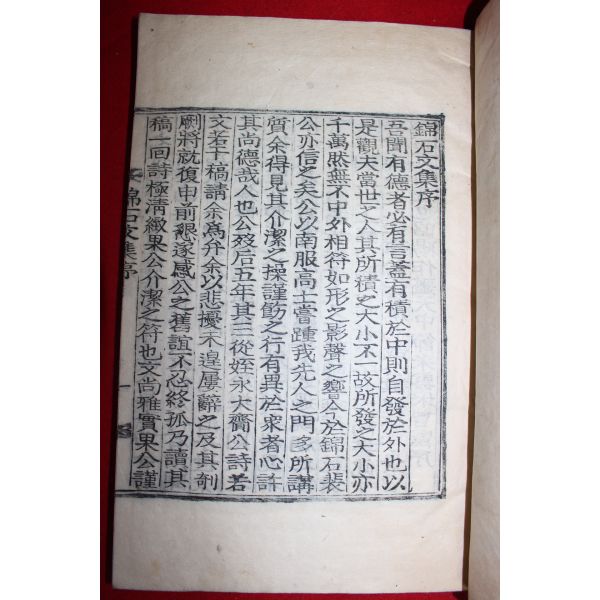 錦石文集序
吾聞有德者必有言盖有積於中則自發於外也以
是觀夫當世之人其所積之大小不一故所發之大小亦
千萬然無不中外相符如形之影聲之響今於錦石裴
公亦信之矣公以南服高士嘗踵我先人之門多所講
質余得見其介潔之操謹飭之行有異於衆者心許
其尚德哉人也公歿后五年其三從姪永大齎公詩若
文若干稿請余爲弁余以悲擾未遑屢辭之及其剞
劂將就復申前懇遂感公之舊誼不忍終孤乃讀其
稿一回詩極清緻果公介潔之符也文尚雅實果公謹
錦石文集序
一